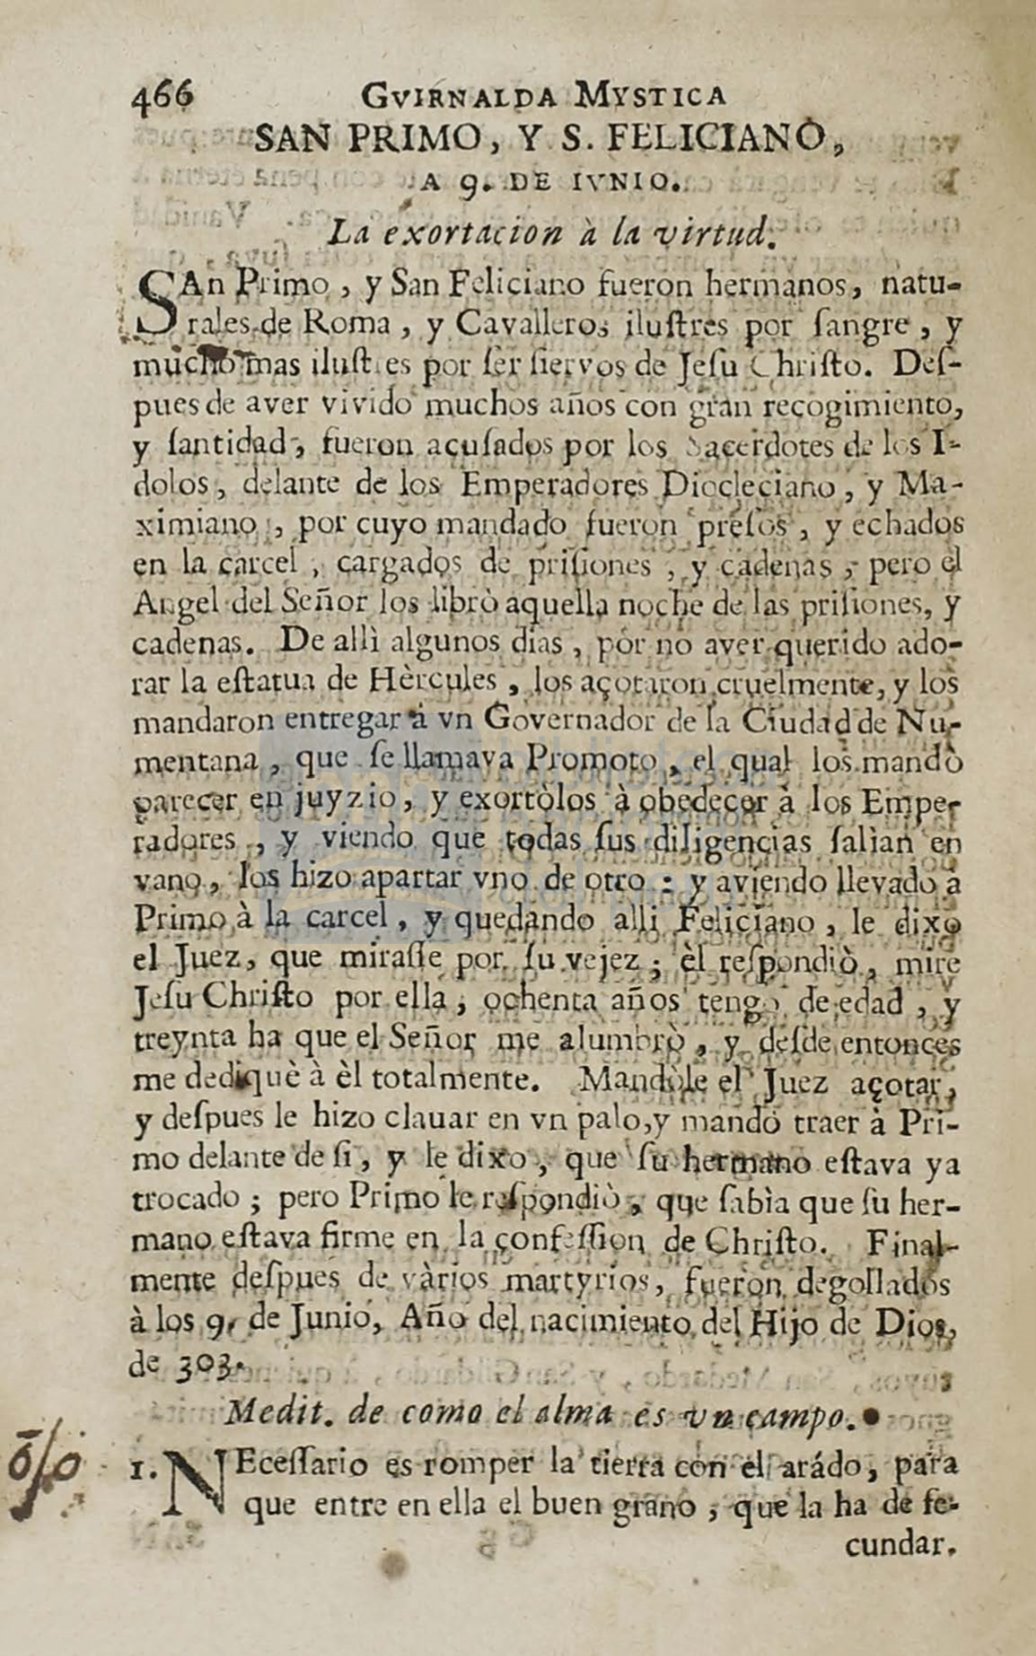 466 GVIRNALDA MYSTICA
SAN PRIMO, Y S. FELICIANO,
A 9. DE IVNIO.
La exortacion à la virtud.
SAn Primo, y San Feliciano fueron hermanos, natu-
rales de Roma, y Cavalleros iluſtres por ſangre, y
mucho mas iluſtres por ſer ſiervos de Jeſu Chriſto. Deſ-
pues de aver vivido muchos años con gran recogimiento,
y ſantidad, fueron acuſados por los Sacerdotes de los I-
dolos, delante de los Emperadores Diocleciano, y Ma-
ximiano, por cuyo mandado fueron preſos, y echados
en la carcel, cargados de priſiones, y cadenas, pero el
Angel del Señor los librò aquella noche de las priſiones, y
cadenas. De allì algunos dias, por no aver querido ado-
rar la eſtatua de Hèrcules, los açotaron cruelmente, y los
mandaron entregar à vn Governador de la Ciudad de Nu-
mentana, que ſe llamava Promoto, el qual los mandò
parecer en juyzio, y exortòlos à obedecer à los Empe-
radores, y viendo que todas ſus diligencias ſalian en
vano, los hizo apartar vno de otro: y aviendo llevado à
Primo à la carcel, y quedando alli Feliciano, le dixo
el Juez, que miraſſe por ſu vejez; èl reſpondiò, mire
Jeſu Chriſto por ella, ochenta años tengo de edad, y
treynta ha que el Señor me alumbrò, y deſde entonces
me dediquè à èl totalmente. Mandòle el Juez açotar,
y deſpues le hizo clauar en vn palo, y mandò traer à Pri-
mo delante de ſi, y le dixo, que ſu hermano eſtava ya
trocado; pero Primo le reſpondiò, que ſabìa que ſu her-
mano eſtava firme en la confeſſion de Chriſto. Final-
mente deſpues de vàrios martyrios, fueron degollados
à los 9. de Junio, Año del nacimiento del Hijo de Dios,
de 303.
Medit. de como el alma es vn campo.
1. NEceſſario es romper la tierra con el arádo, para
que entre en ella el buen grano, que la ha de fe-
cundar.